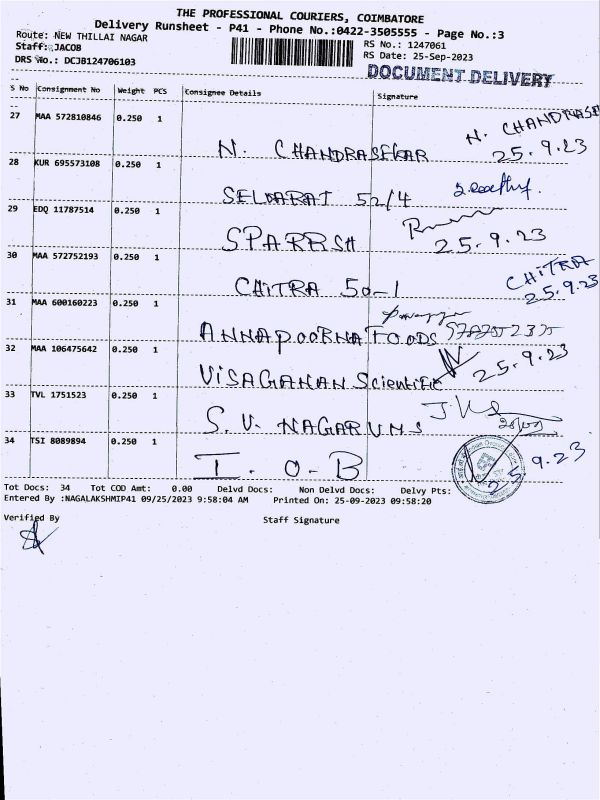 THE PROFESSIONAL COURIERS, COIMBATORE
Delivery Runsheet - P41 - Phone No.:0422-3505555 - Page No.:3
Route: NEW THILLAI NAGAR
RS No.: 1247061
Staff: JACOB
RS Date: 25-Sep-2023
DRS No.: DCJB124706103
DOCUMENT DELIVERY
S No Consignment No Weight PCS Consignee Details Signature
27 MAA 572810846 0.250 1
N. CHANDRASEKAR N. CHANDRASE
25.9.23
28 KUR 695573108 0.250 1
SELVARAJ 52/4
29 EDQ 11787514 0.250 1
SPARRSH 25.9.23
30 MAA 572752193 0.250 1
CHITRA 50-1 CHITRA
25.9.23
31 MAA 600160223 0.250 1
ANNAPOORNA FOODS
32 MAA 106475642 0.250 1
VISAGANAN Scientific 25.9.23
33 TVL 1751523 0.250 1
S. V. NAGAR UMS
34 TSI 8089894 0.250 1
I. O-B 25.9.23
Tot Docs: 34 Tot COD Amt: 0.00 Delvd Docs: Non Delvd Docs: Delvy Pts:
Entered By :NAGALAKSHMIP41 09/25/2023 9:58:04 AM Printed On: 25-09-2023 09:58:20
Verified By Staff Signature